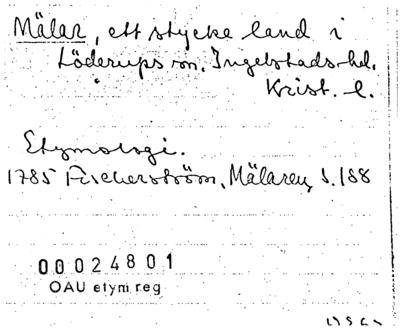 Mälar, ett stycke land i
Löderups sn. Ingelstads hd.
Krist. l.
Etymologi.
1785 Fischerström, Mälaren, S. 188
00024801
OAU etym reg